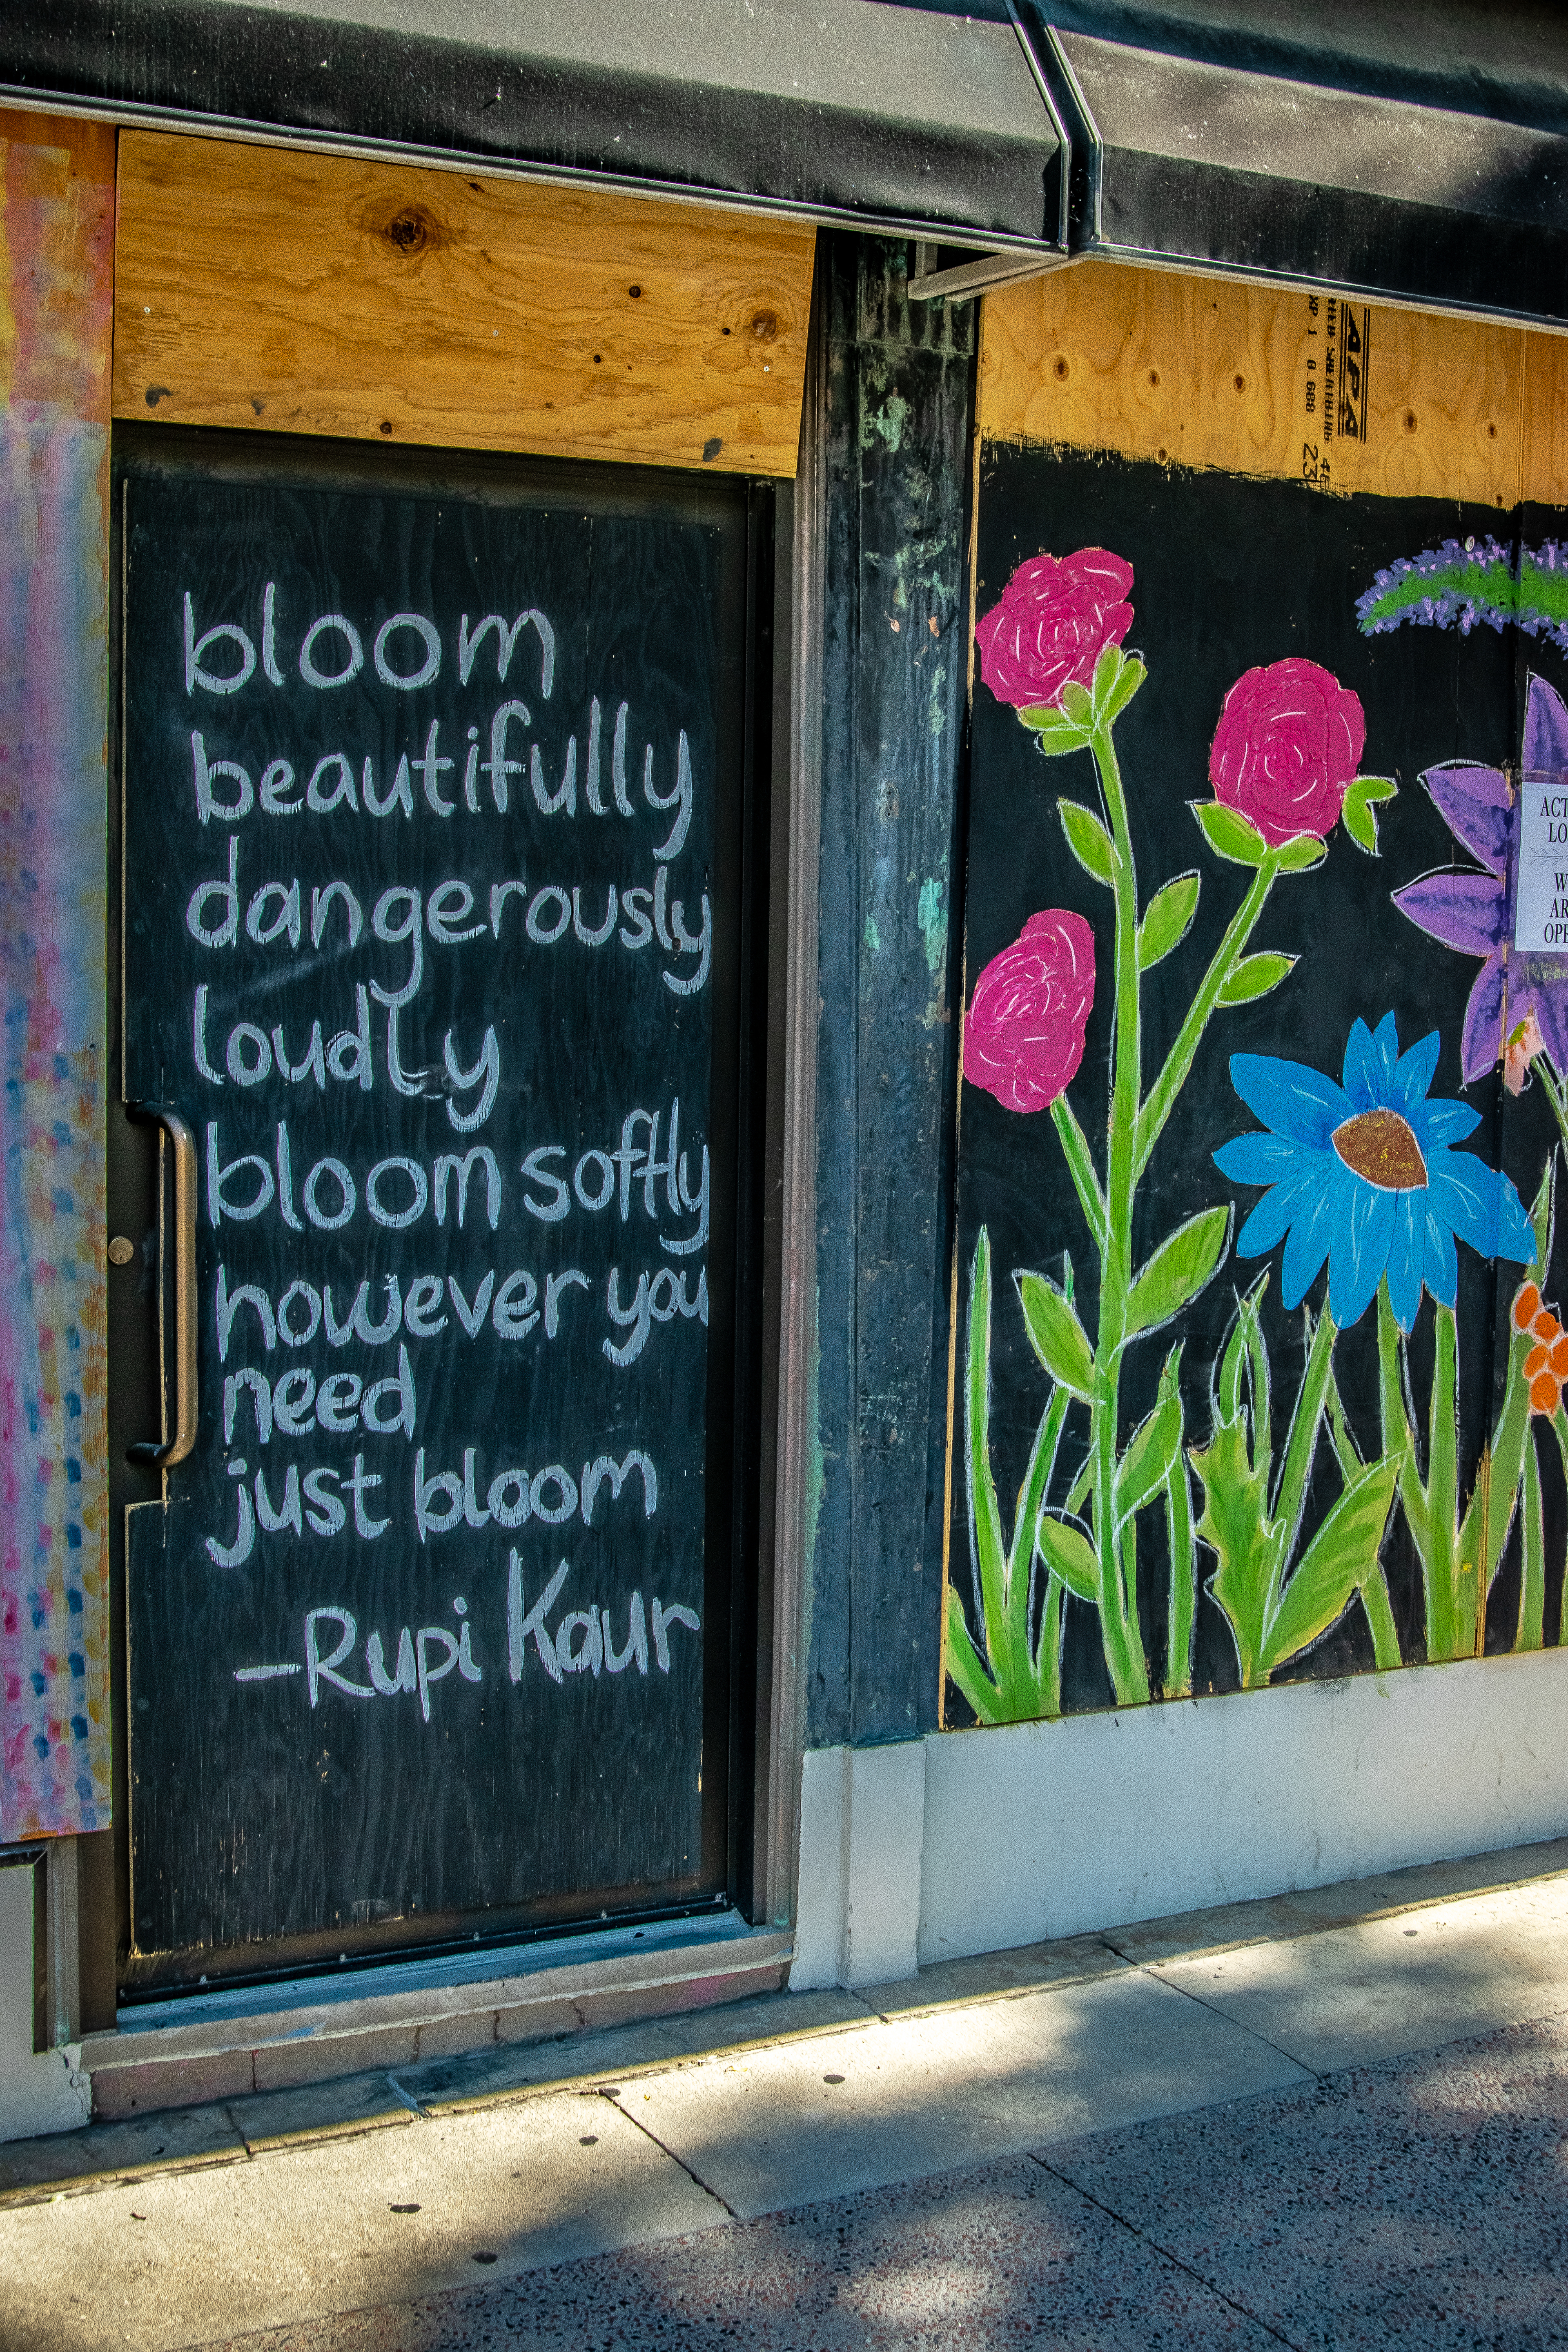 bloom
beautifully
dangerously
loudly
bloom softly
however you
need
just bloom
-Rupi Kaur
APA
23
ACT
LO
W
AR
OPE